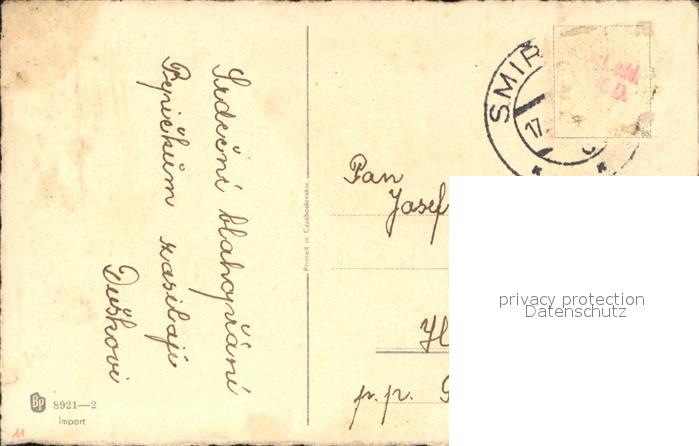 Srdeční blahopřání
Pepičkům zasílají
Duškovi
8921—2
Import
Printed in Czechoslovakia
SMIR
17.
Pan
Josef
p.p.
privacy protection
Datenschutz